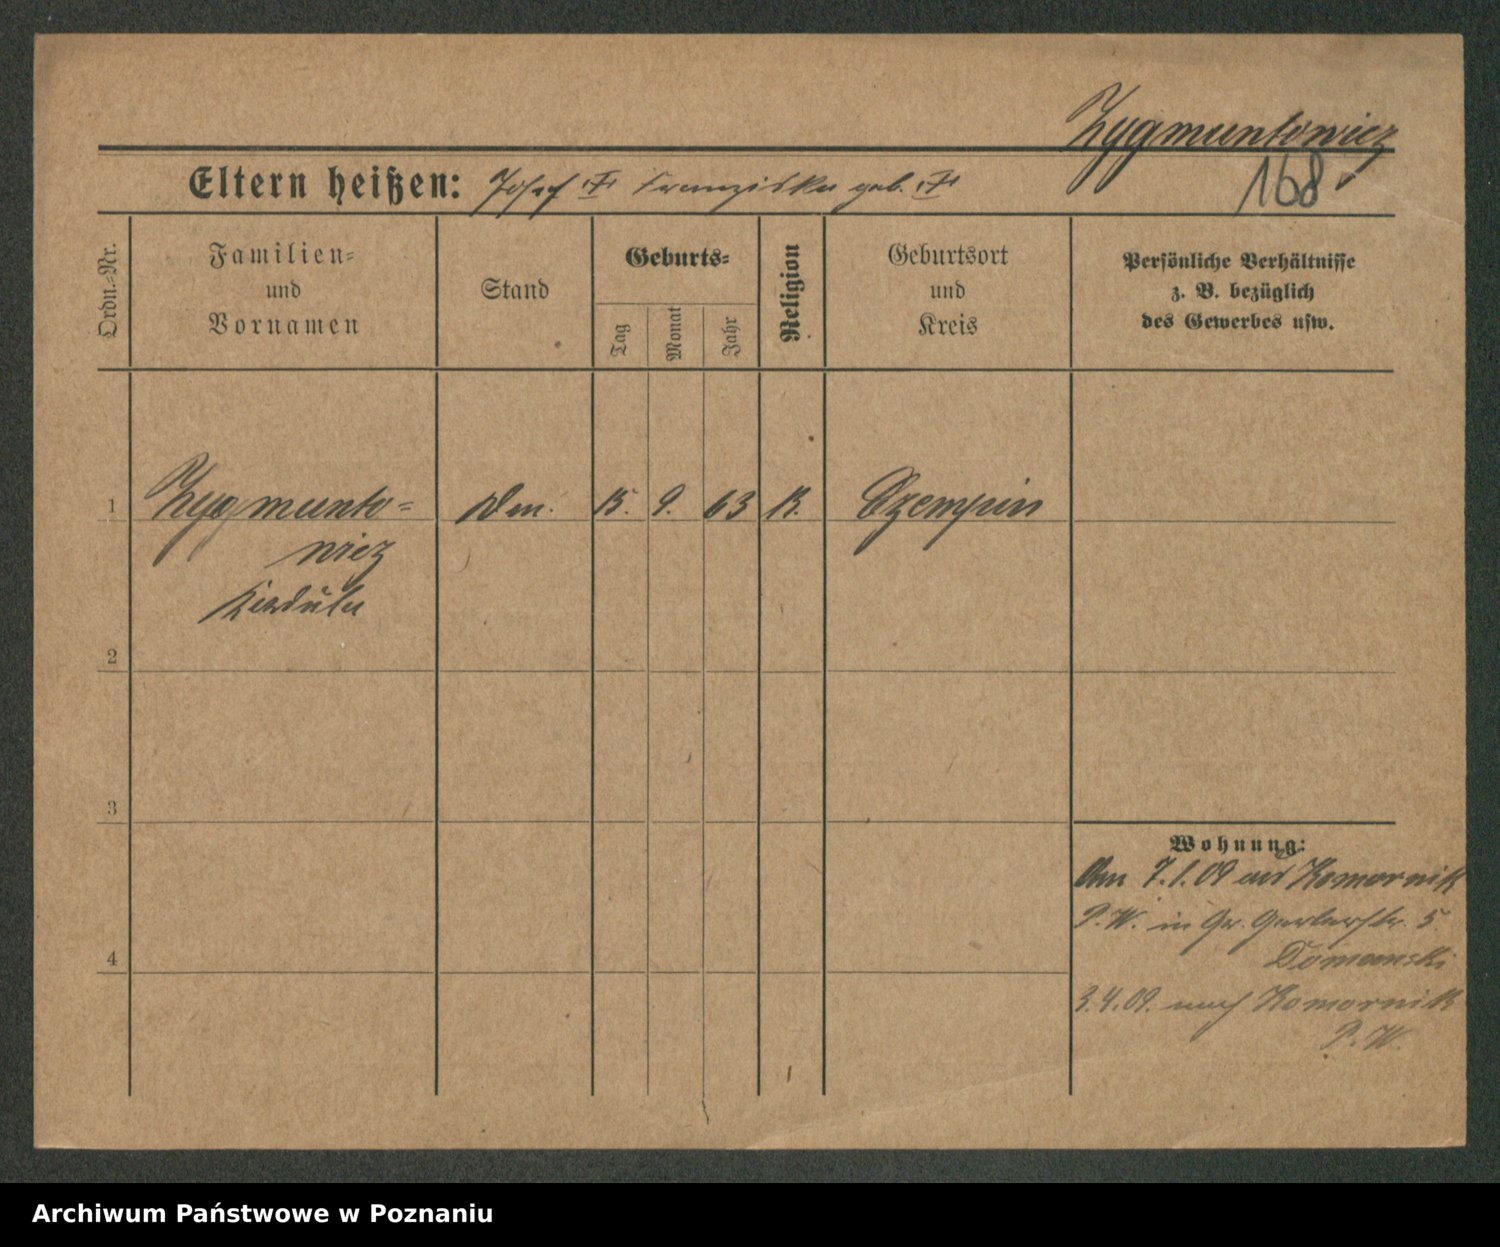 Zygmuntowicz
168
Eltern heißen: Josef Franziska geb.
Ordn.-Nr.
Familien-
und
Vornamen
Stand
Geburts-
Tag
Monat
Jahr
Religion
Geburtsort
und
Kreis
Persönliche Verhältnisse
z. B. bezüglich
des Gewerbes usw.
1 Zygmunto= 15. 9. 63 K. Czempin
wicz
2
3
Wohnung:
Am 7.1.09 aus Komornik
P. W. in Gr. Gerberstr. 5
Domanski
4
3.4.09. nach Komornik
P. W.
Archiwum Państwowe w Poznaniu